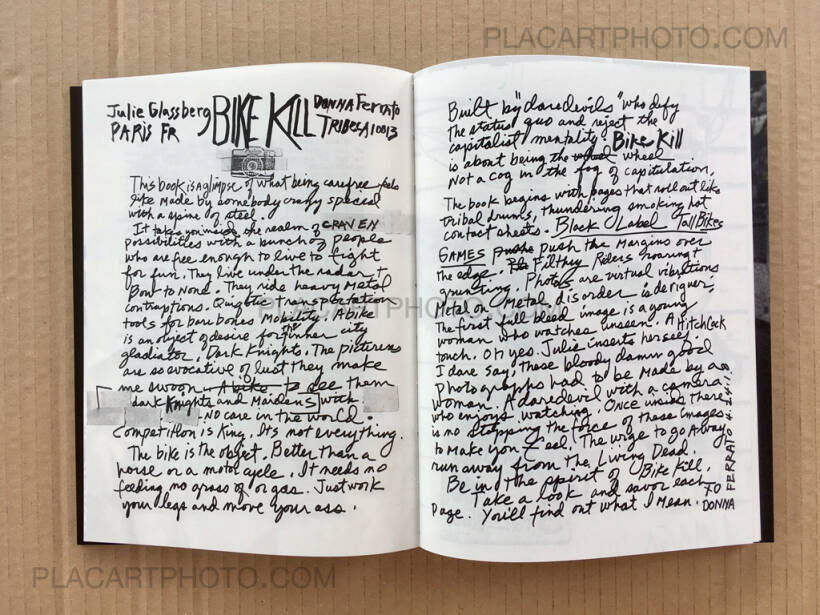 PLACARTPHOTO.COM
Julie Glassberg BIKE KILL DONNA Ferrato
PARIS FR TRIBECA 10013
This book is a glimpse of what being carefree feels
like made by somebody crazy special
with a spine of steel.
It takes you inside the realm of CRAVEN
possibilities with a bunch of people
who are free enough to live to fight
for fun. They live under the radar +
Bow to None. They ride heavy Metal
contraptions. Quixotic transportation
tools for bare bones Mobility. A bike
is an object of desire for the inner city
gladiator. Dark Knights. The pictures
are so evocative of lust they make
me swoon. A bike to see them
dark Knights and Maidens with
NO care in the world.
Competition is King. It's not everything.
The bike is the object. Better than a
horse or a motorcycle. It needs no
feeding no grass or gas. Just work
your legs and move your ass.
Built by "daredevils" who defy
the status quo and reject the
capitalist mentality. Bike Kill
is about being the wheel
Not a cog in the fog of capitulation.
The book begins with pages that roll out like
tribal drums, thundering smoking hot
contact sheets. Black Label Tall Bikes
GAMES push the Margins over
the edge. Filthy Riders roaring +
grunting. Photos are virtual vibrations
Metal on Metal disorder is de riguer.
The first full bleed image is a young
woman who watches unseen. A Hitchcock
touch. Oh yes. Julie inserts herself.
I dare say, these bloody damn good
photographs had to be made by a
woman. A daredevil with a camera
who enjoys watching. Once inside there
is no stopping the force of these images
to Make you feel. The urge to go Away
run away from the Living Dead.
Be in the spirit of Bike Kill.
Take a look and savor each
page. You'll find out what I Mean.
XO
DONNA
FERRATO
PLACARTPHOTO.COM
PLACARTPHOTO.COM